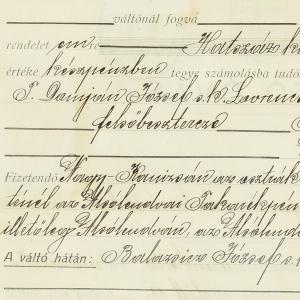 váltónál fogva
rendelet em re Hatszáz k
értéke készpénzben tegye számolásba tudó
T. Damján József s.k. Lawrenc
felsőbesztercze
Fizetendő Nagy-Kanizsán az osztrák
ténél az Alsólendvai Takarékpén
illetőleg Alsólendván, az Alsólend
A váltó hátán: József s.